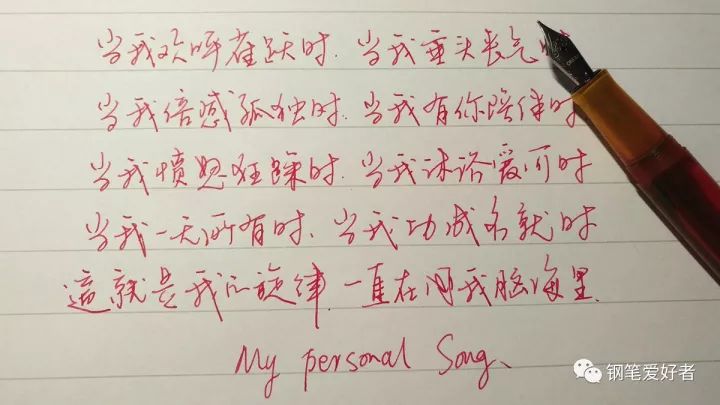 当我欢呼雀跃时.当我垂头丧气时
当我倍感孤独时.当我有你陪伴时
当我愤怒狂躁时.当我沐浴爱河时
当我一无所有时、当我功成名就时
這就是我的旋律.一直在我脑海里.
My personal Song、
钢笔爱好者